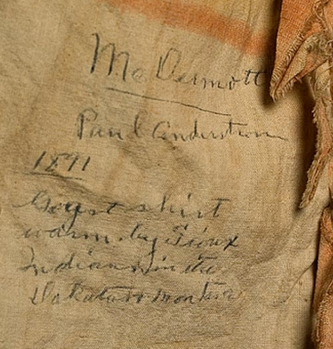 McDermott
Paul Anderstrom
1891
Goust shirt
warm by Sioux
Indians in the
Dakatas Montan